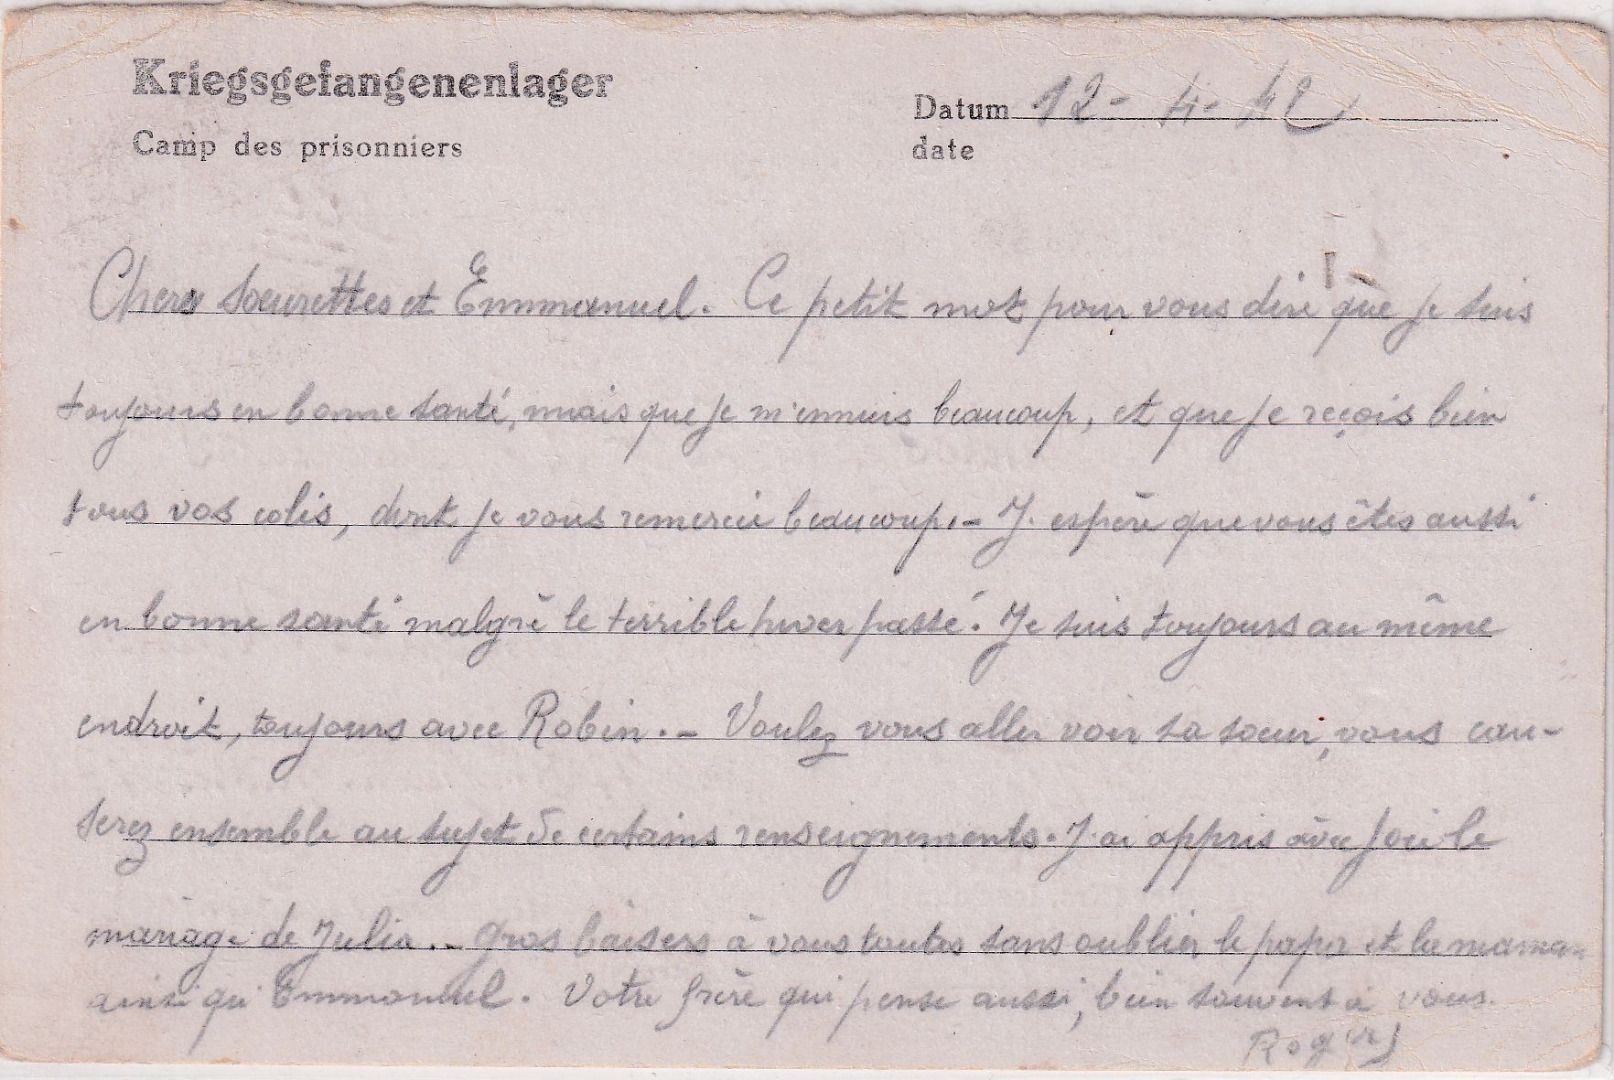 Kriegsgefangenenlager
Camp des prisonniers
Datum 12-4-42
date
Chers soeurettes et Emmanuel. Ce petit mot pour vous dire que je suis
toujours en bonne santé, mais que je m'ennuis beaucoup, et que je reçois bien
tous vos colis, dont je vous remercie beaucoup.- J'espère que vous êtes aussi
en bonne santé malgrè le terrible hiver passé. Je suis toujours au même
endroit, toujours avec Robin.- Voulez vous aller voir sa soeur, vous cau-
serez ensemble au sujet de certains renseignements. J'ai appris avec joie le
mariage de Julia.- gros baisers à vous toutes sans oublier le papa et la maman
ainsi qu'Emmanuel. Votre frère qui pense aussi, bien souvent à vous.
Roger